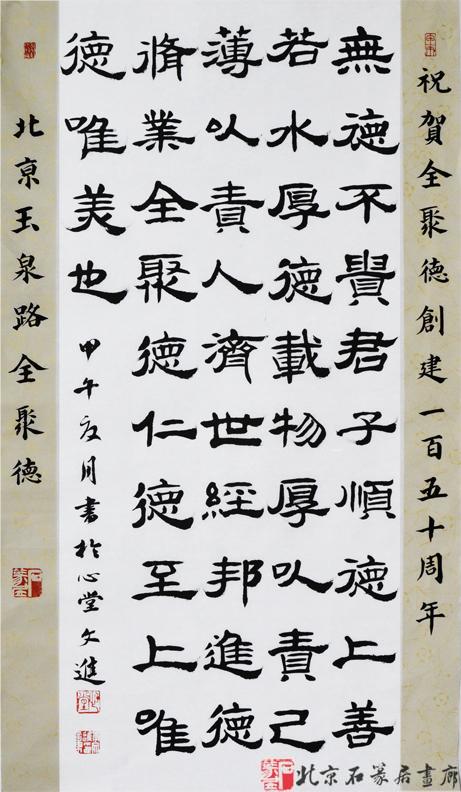 祝賀全聚德創建一百五十周年
無德不貴君子順德上善
若水厚德載物厚以責己
薄以責人濟世經邦進德
脩業全聚德仁德至上唯
德唯美也
甲午夏月書於心堂文進
北京玉泉路全聚德
北京石篆居畫廊